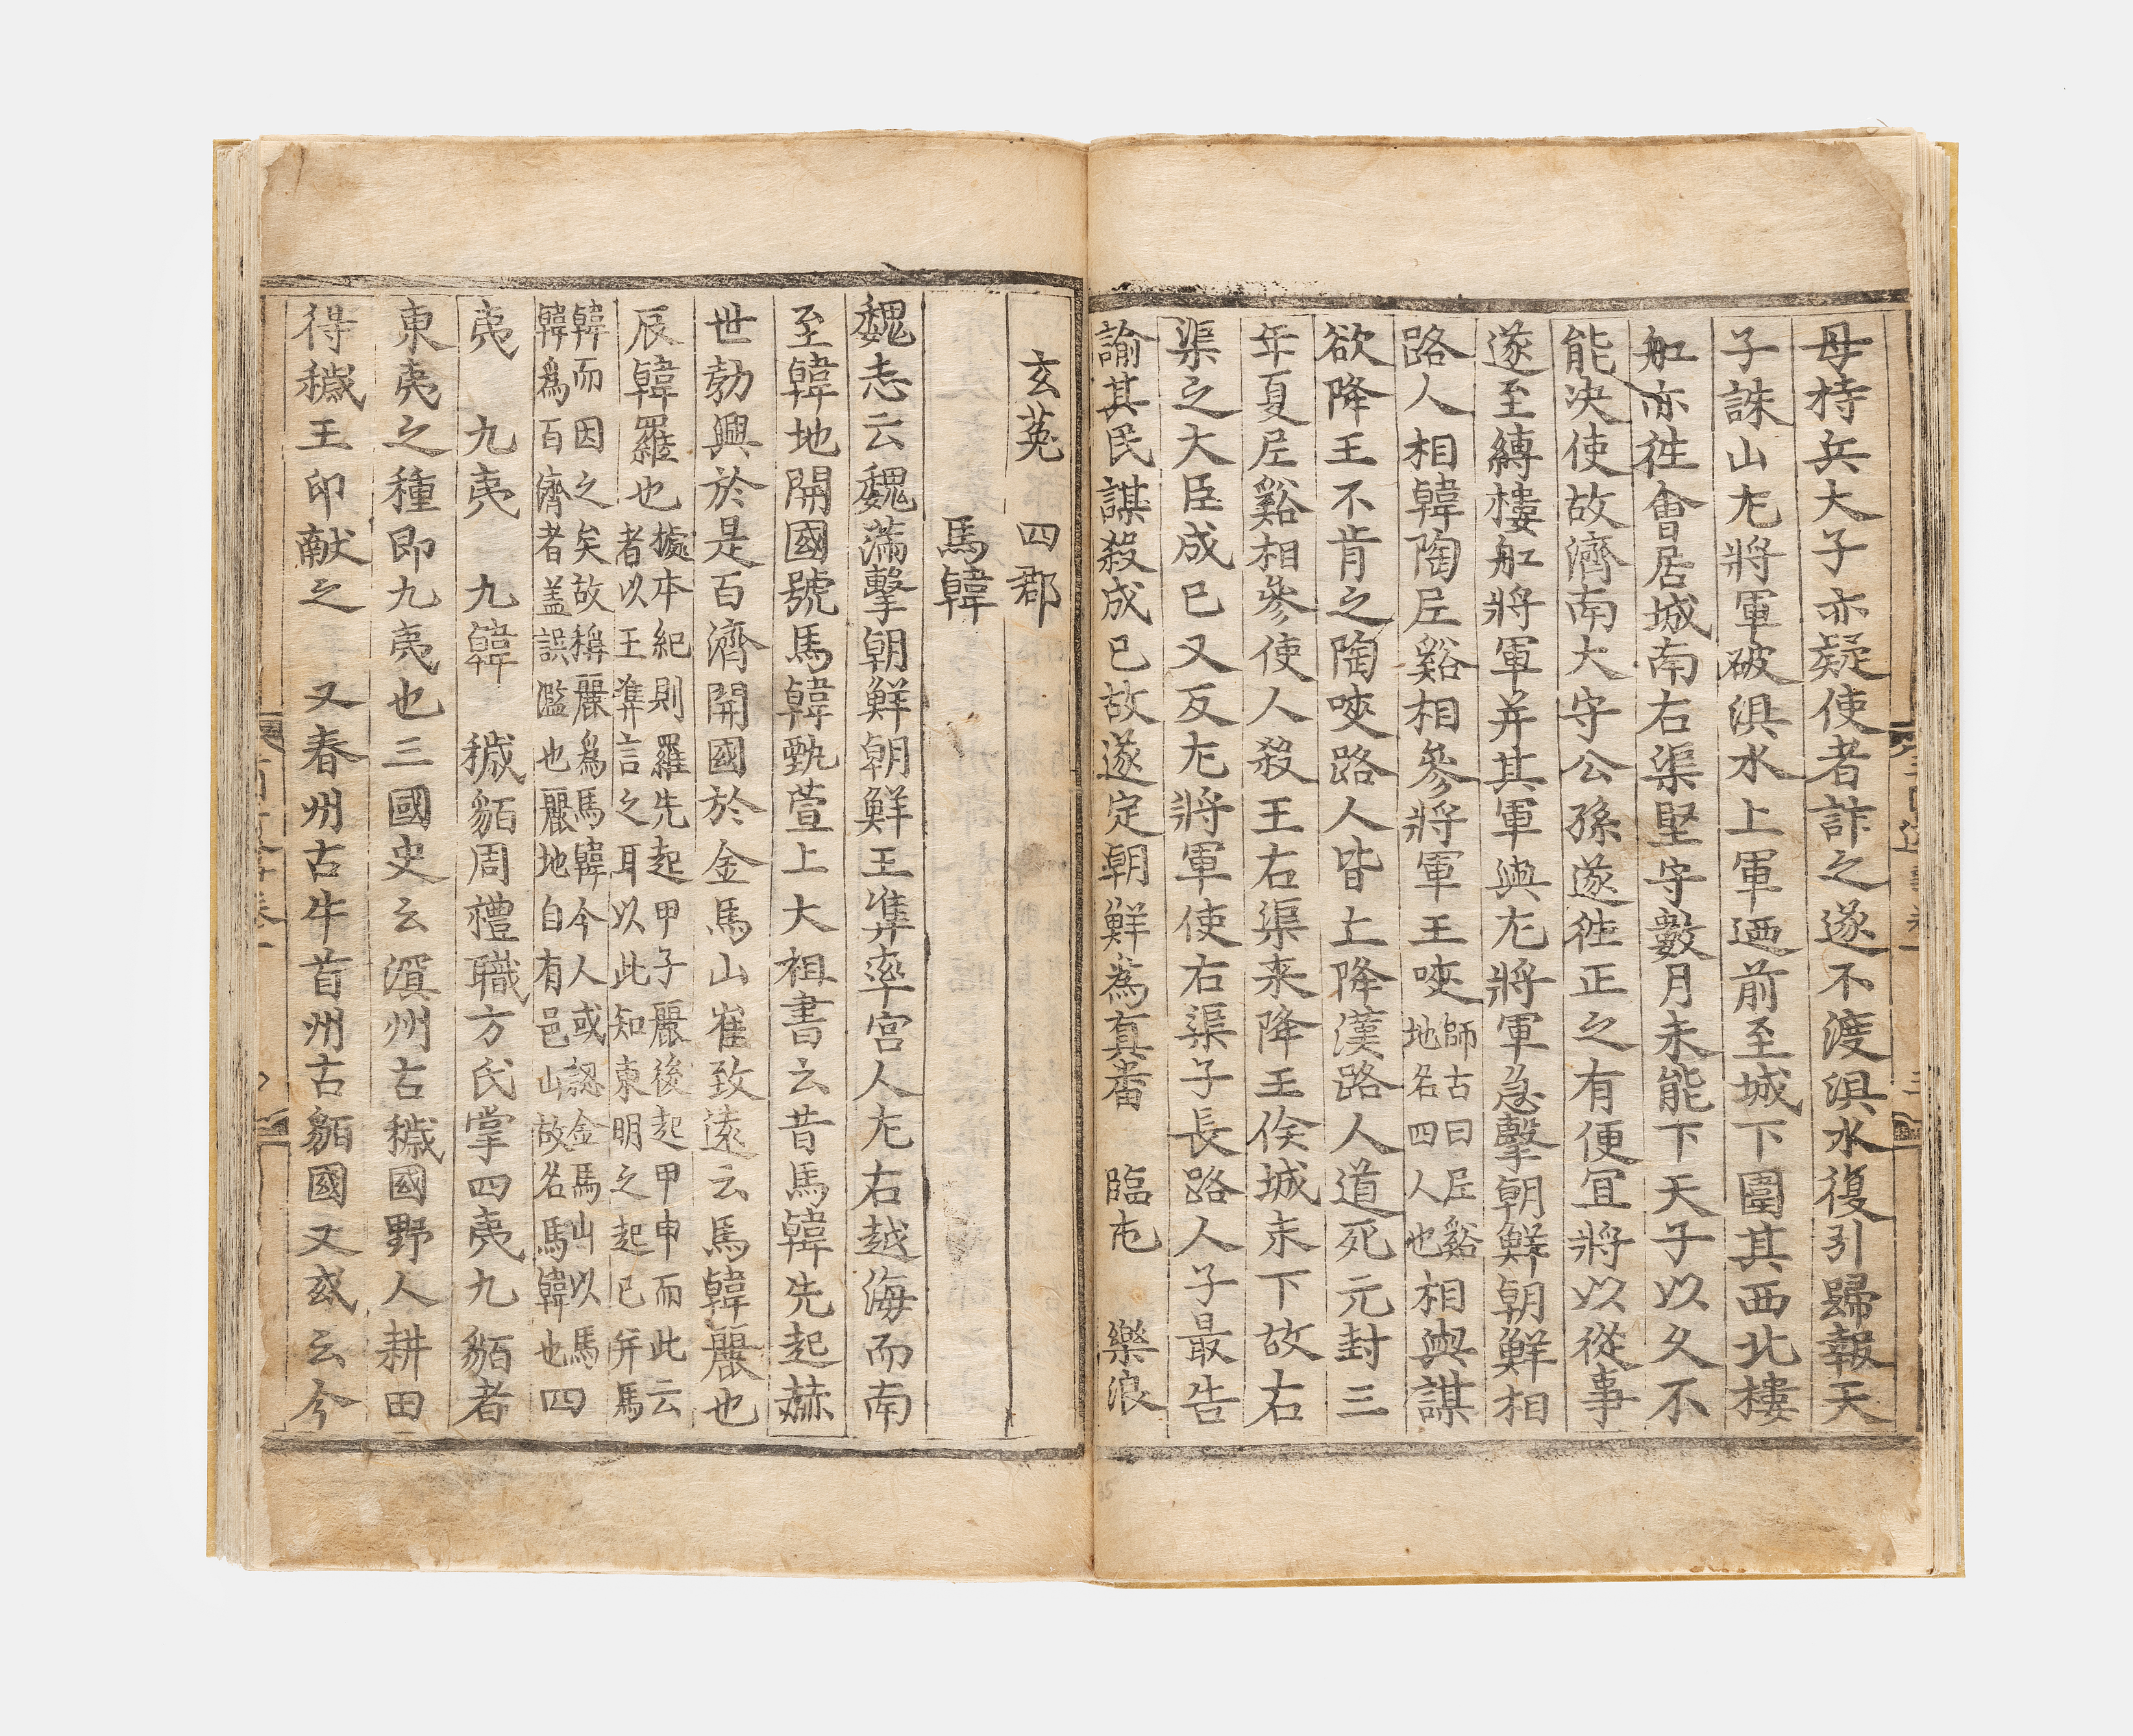 母持兵大子亦疑使者詐之遂不渡浿水復引歸報天
子誅山尢將軍破浿水上軍迺前至城下圍其西北樓
舡亦徃會居城南右渠堅守數月未能下天子以久不
能决使故濟南大守公孫遂徃正之有便冝將以從事
遂至縛樓舡將軍并其軍與尢將軍急擊朝鮮朝鮮相
路人相韓陶尼谿相參將軍王唊師古曰尼谿地名四人也相與謀
欲降王不肯之陶唊路人皆亡降漢路人道死元封三
年夏尼谿相參使人殺王右渠来降王俟城未下故右
渠之大臣成已又反尢將軍使右渠子長路人子最告
諭其民謀殺成已故遂定朝鮮為真番 臨屯 樂浪
玄菟 四郡
馬韓
魏志云魏滿擊朝鮮朝鮮王準率宮人尢右越海而南
至韓地開國號馬韓甄萱上大祖書云昔馬韓先起赫
世勃興於是百濟開國於金馬山崔致遠云馬韓麗也
辰韓羅也據本紀則羅先起甲子麗後起甲申而此云者以王準言之耳以此知東明之起已并馬
韓而因之矣故稱麗爲馬韓今人或認金馬山以馬韓爲百濟者盖誤濫也麗地自有邑山故名馬韓也四
夷 九夷 九韓 穢貊周禮職方氏掌四夷九貊者
東夷之種即九夷也三國史云溟州古穢國野人耕田
得穢王印献之 又春州古牛首州古貊國又或云今